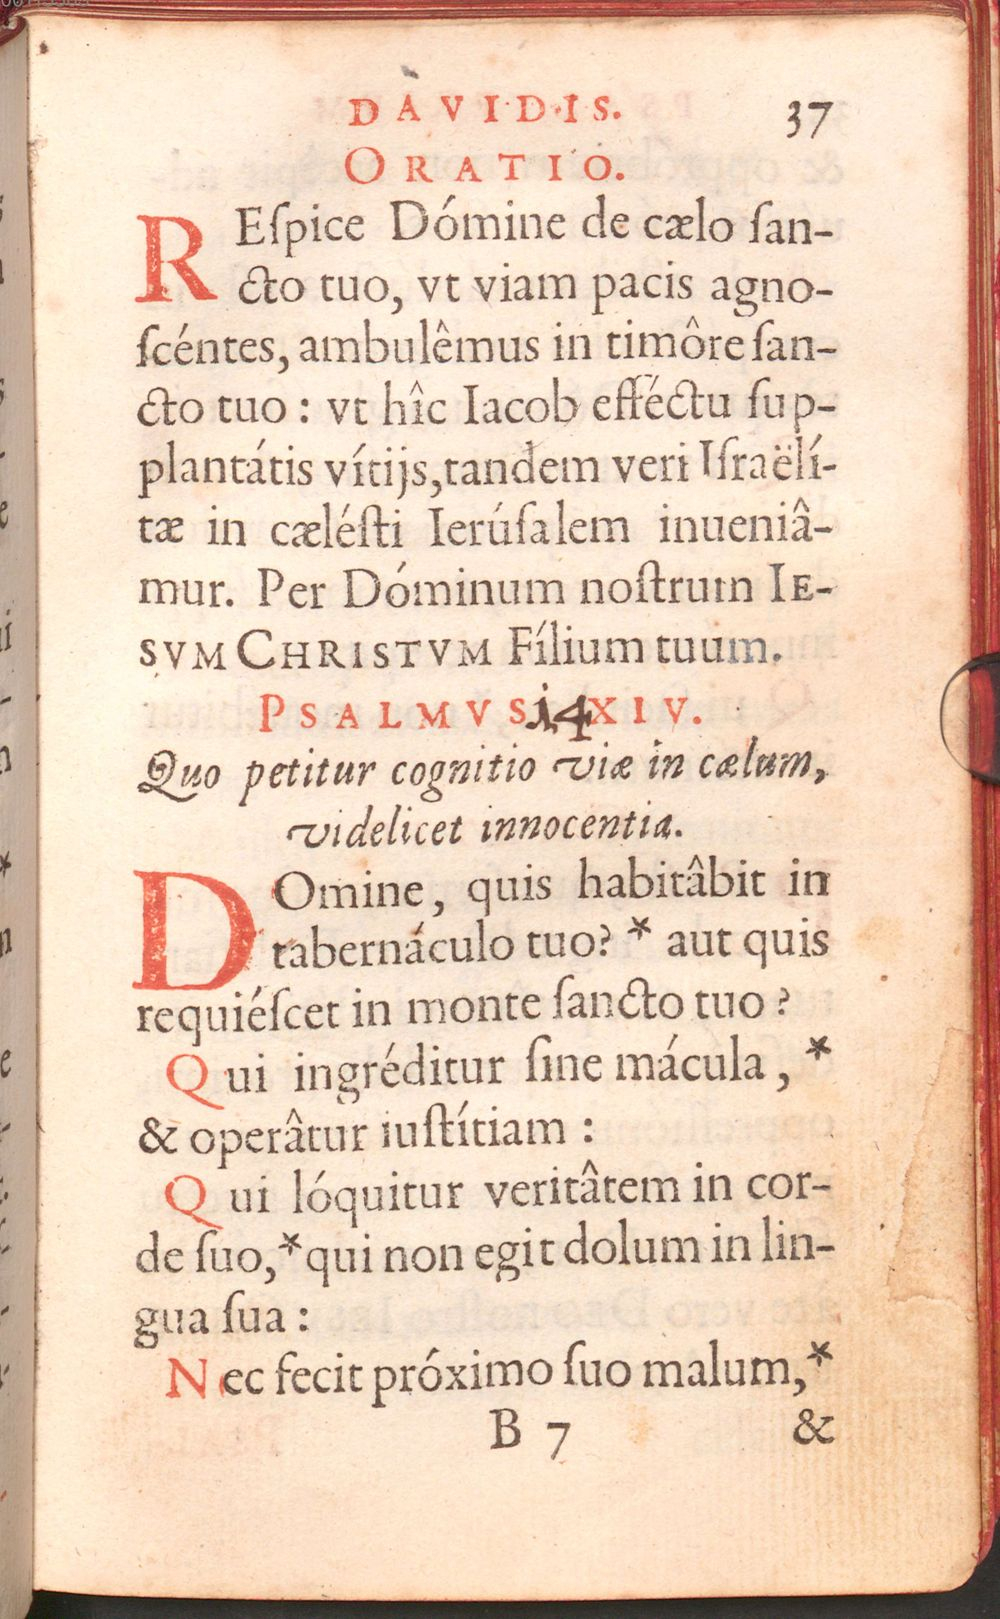 DAVIDIS. 37
ORATIO.
REſpice Dómine de cælo ſan-
cto tuo, vt viam pacis agno-
ſcéntes, ambulêmus in timôre ſan-
cto tuo : vt hîc Iacob efféctu ſup-
plantátis vítijs, tandem veri Iſraëlí-
tæ in cæléſti Ierúſalem inueniâ-
mur. Per Dóminum noſtrum IE-
SVM CHRISTVM Fílium tuum.
PSALMVS 14 XIV.
Quo petitur cognitio viæ in cælum,
videlicet innocentia.
DOmine, quis habitâbit in
tabernáculo tuo? * aut quis
requiéſcet in monte ſancto tuo ?
Qui ingréditur ſine mácula, *
& operâtur iuſtítiam :
Qui lóquitur veritâtem in cor-
de ſuo, * qui non egit dolum in lin-
gua ſua :
Nec fecit próximo ſuo malum, *
B 7 &